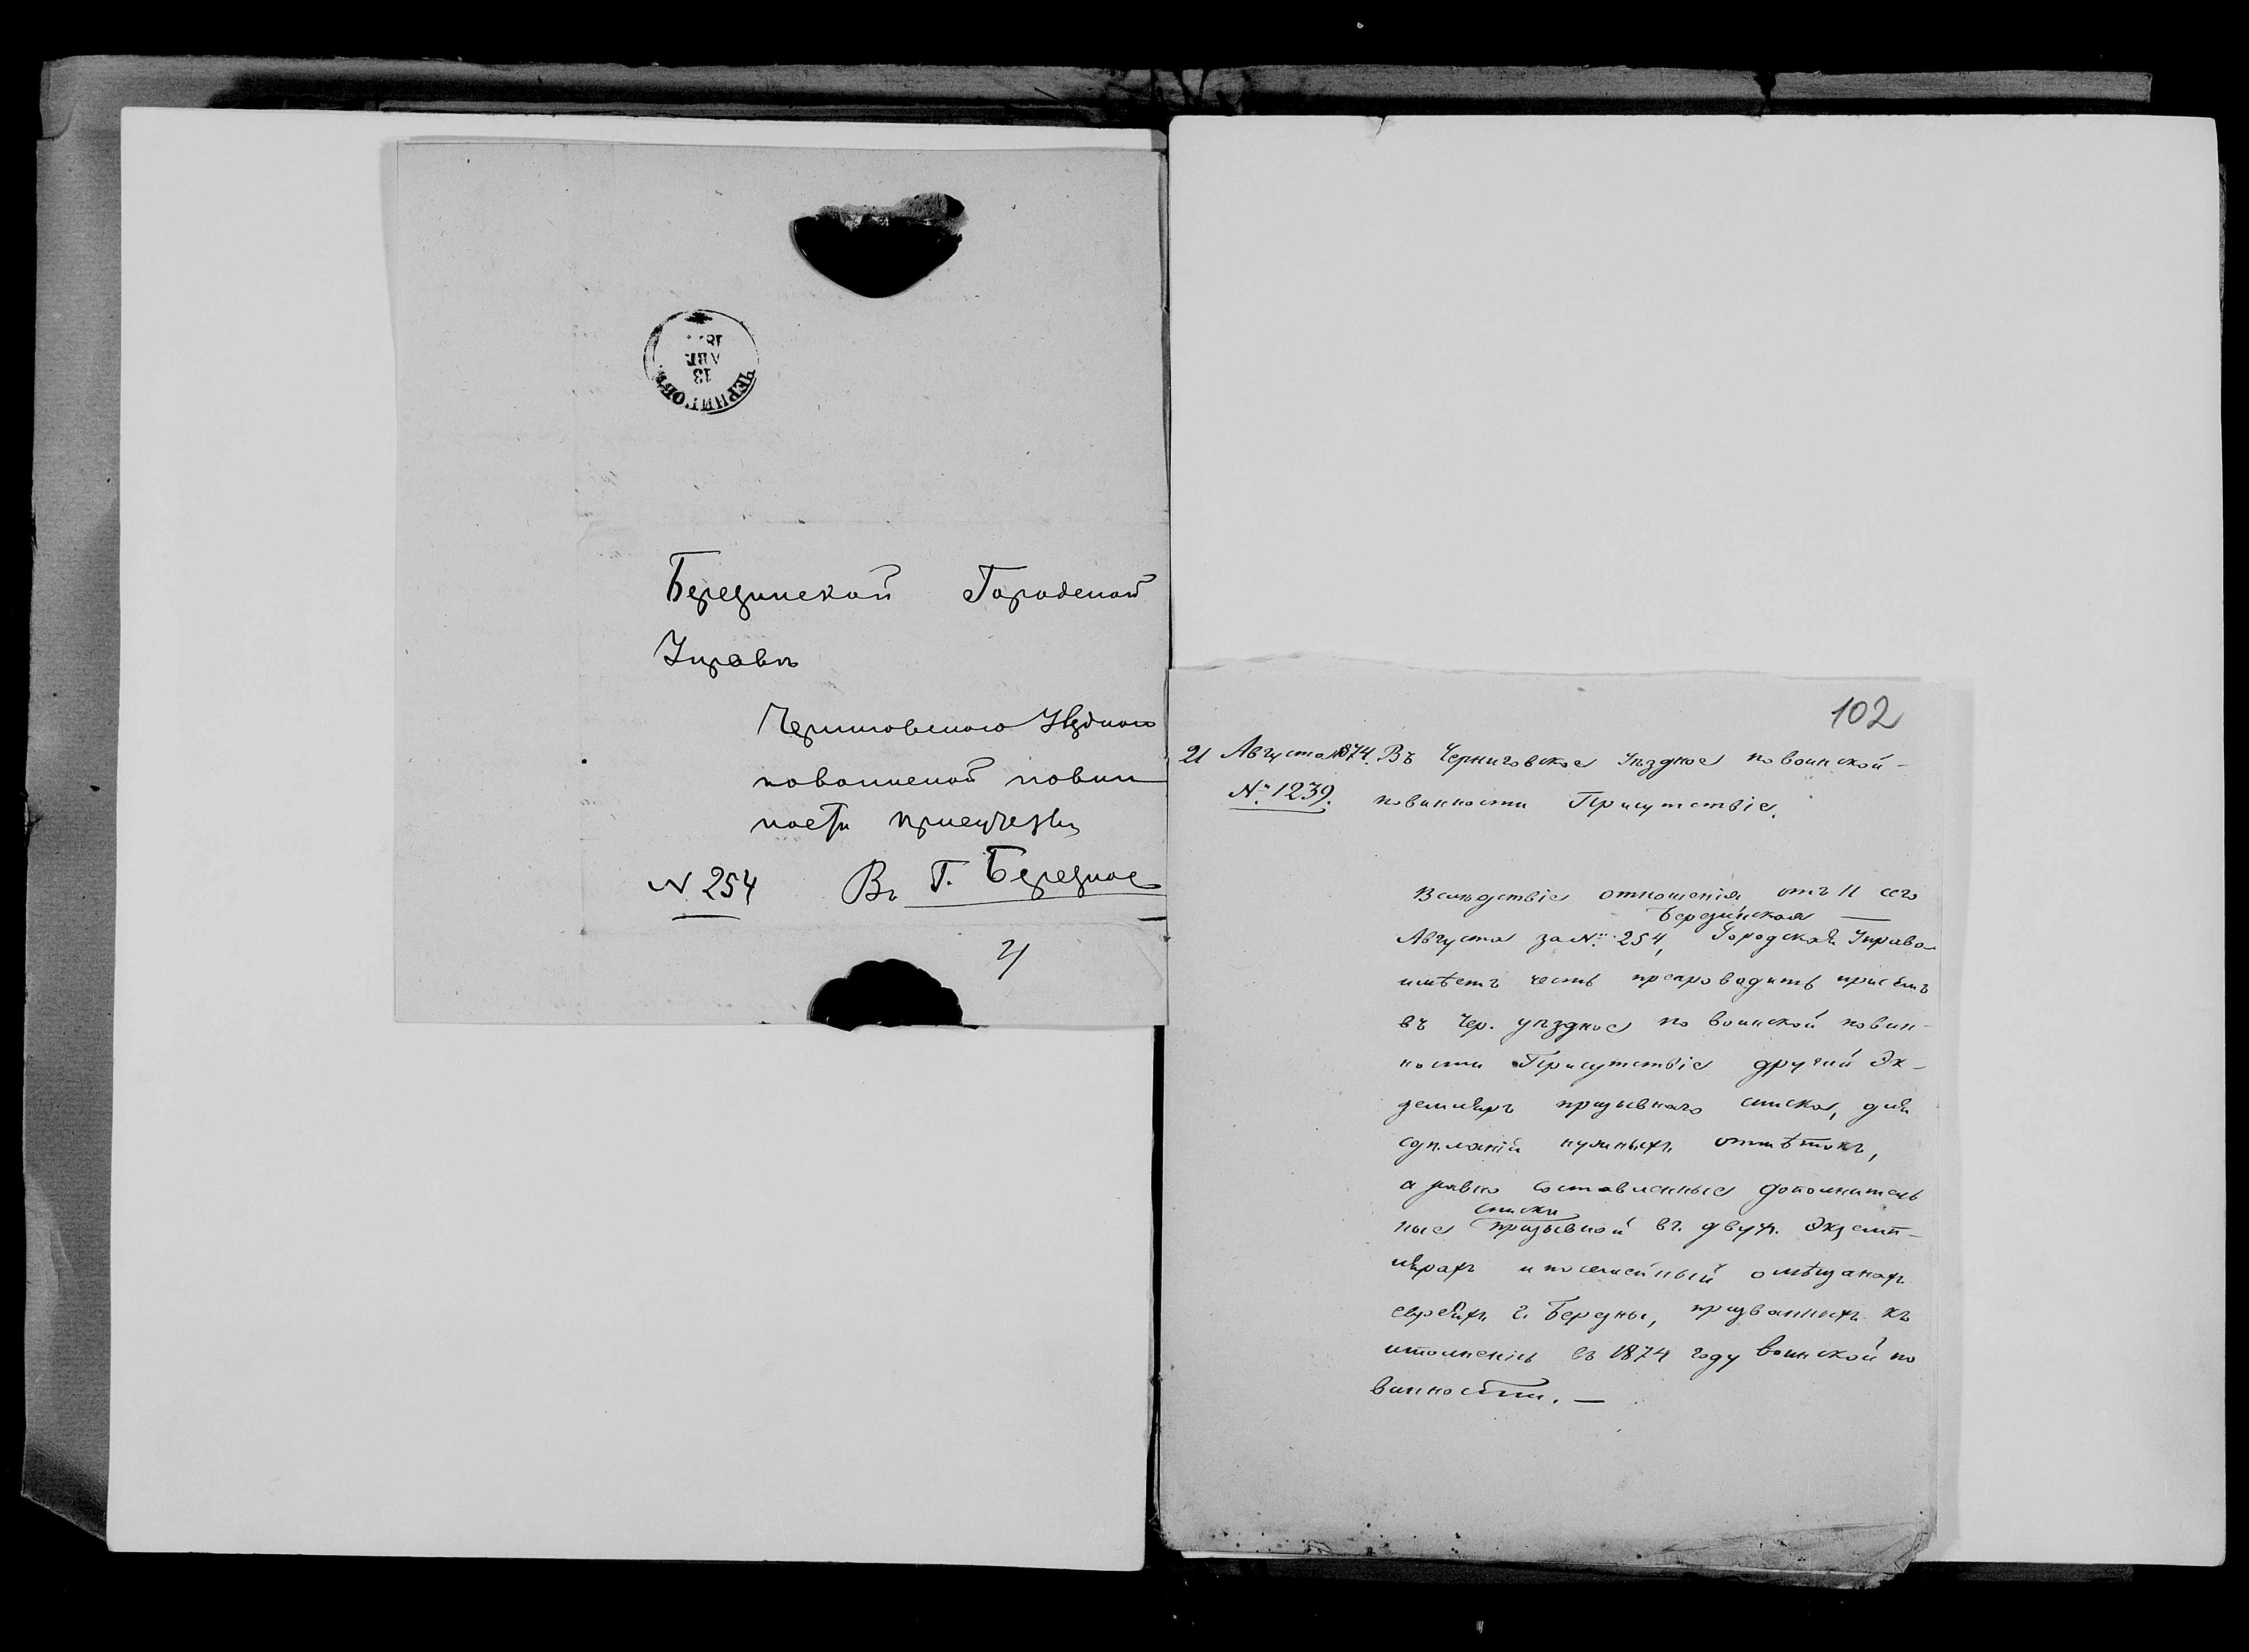 ЧЕРНИГОВЪ
13
АВГ.
18
Березинской Городской
Управѣ
Черниговского Уѣздного
по воинской повин
ности присутствія
N 254 Въ Г. Березное
102
21 Августа 1874. Въ Черниговское Уѣздное по воинской
№ 1239. повинности Присутствіе.
Вслѣдствіе отношенія отъ 11 сего
Березинская
Августа за №. 254, Городская Управа
имѣетъ честь препроводить при семъ
въ Чер. уѣздное по воинской повин-
ности Присутствіе другий Эк-
земляръ призывнаго списка, для
сдѣланія нужныхъ отмѣтокъ,
а равно составленные дополнитель
списки
ные призывной въ двухъ Экземп-
лярахъ и посемейный о мѣщанахъ
евреяхъ г. Березны, призванныхъ къ
исполненію въ 1874 году воинской по
винности. —